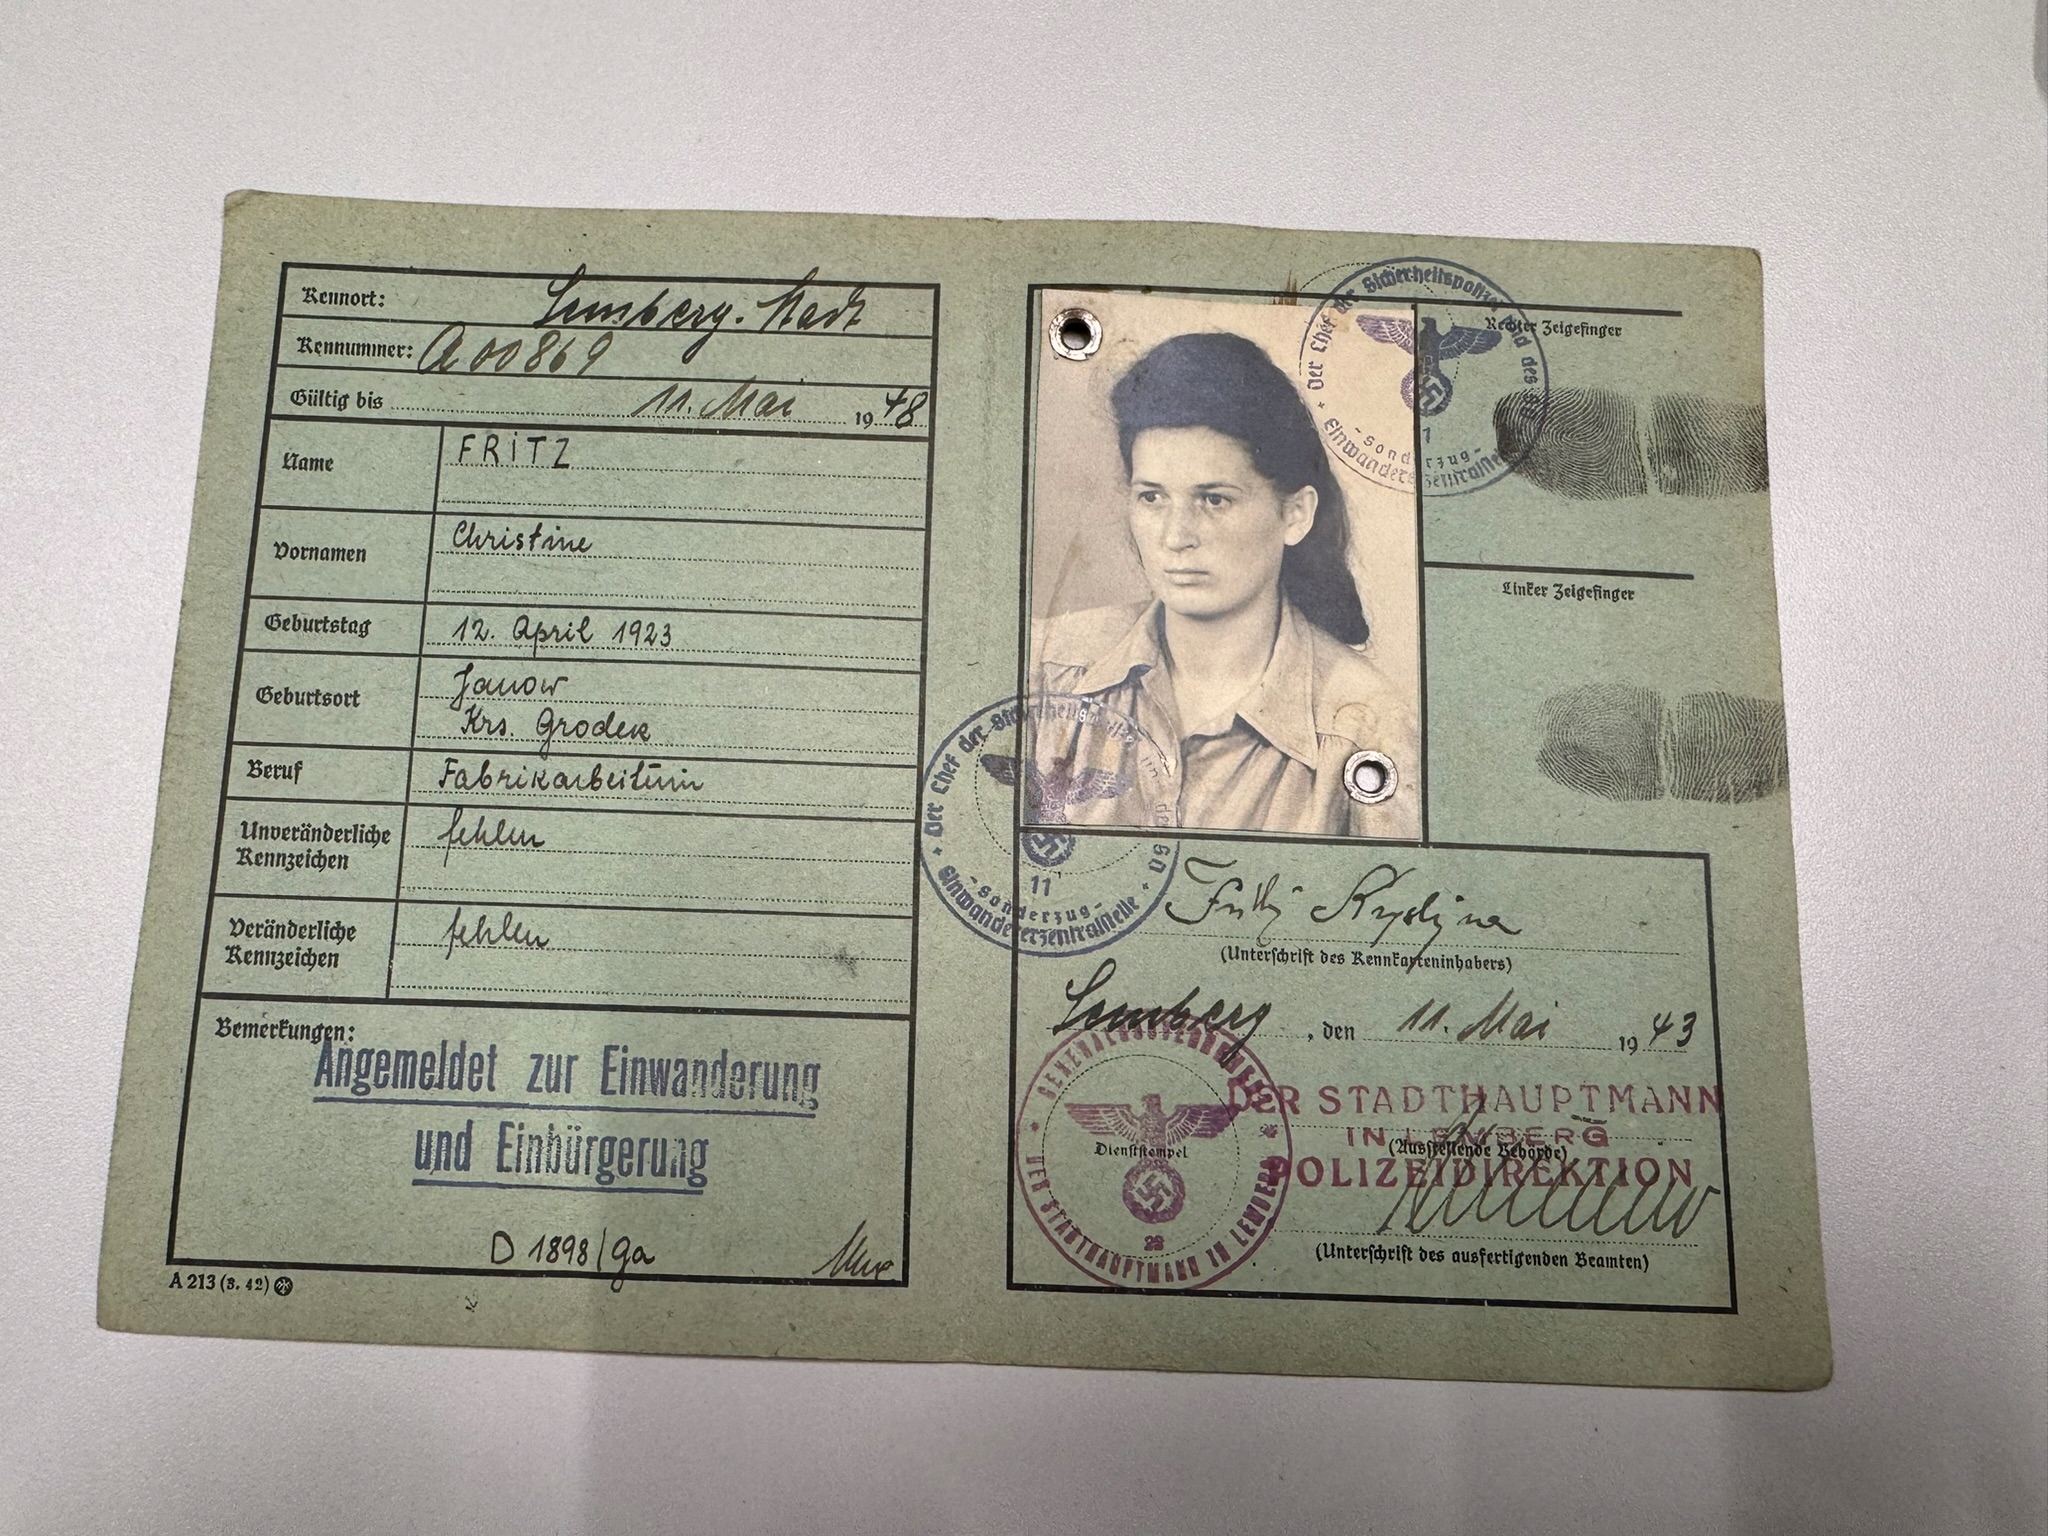 Kennort: Lemberg-Stadt
Kennummer: A00869
Gültig bis 11. Mai 1948
Name FRITZ
Vornamen Christine
Geburtstag 12. April 1923
Geburtsort Janow
Krs. Grodek
Beruf Fabrikarbeiterin
Unveränderliche
Kennzeichen fehlen
Veränderliche
Kennzeichen fehlen
Bemerkungen:
Angemeldet zur Einwanderung
und Einbürgerung
D 1898/ga
A 213 (3. 42)
Rechter Zeigefinger
Linker Zeigefinger
Der Chef der Sicherheitspolizei und des SD
Einwandererzentralstelle
-sonderzug-
11
Der Chef der Sicherheitspolizei und des SD
11
-sonderzug-
Einwandererzentralstelle
Krystyna
(Unterschrift des Kennkarteninhabers)
Lemberg, den 11. Mai 1943
GENERALGOUVERNEMENT
DER STADTHAUPTMANN IN LEMBERG
Dienststempel
28
DER STADTHAUPTMANN
IN LEMBERG
(Ausstellende Behörde)
POLIZEIDIREKTION
(Unterschrift des ausfertigenden Beamten)